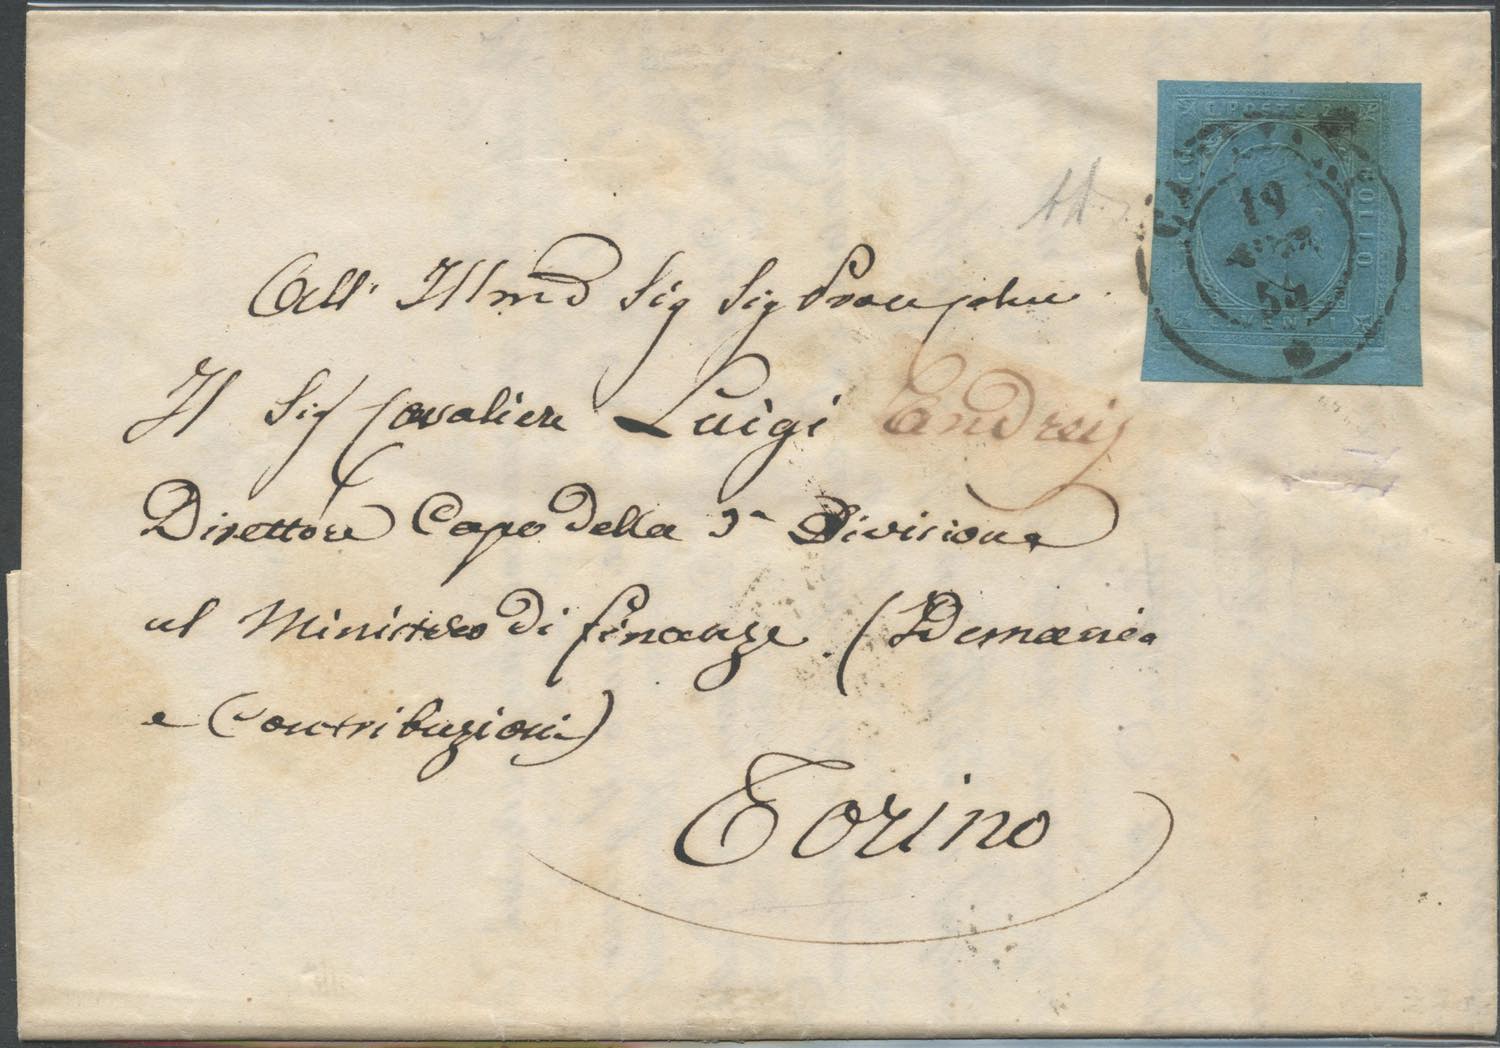 C. POSTE
BOLLO
19
54
All' Illmo Sig Sig Pron
Il Sig Cavaliere Luigi Andreis
Direttore Capo della 3a Divisione
al Ministero di finanze (Demanio
e Contribuzioni)
Torino